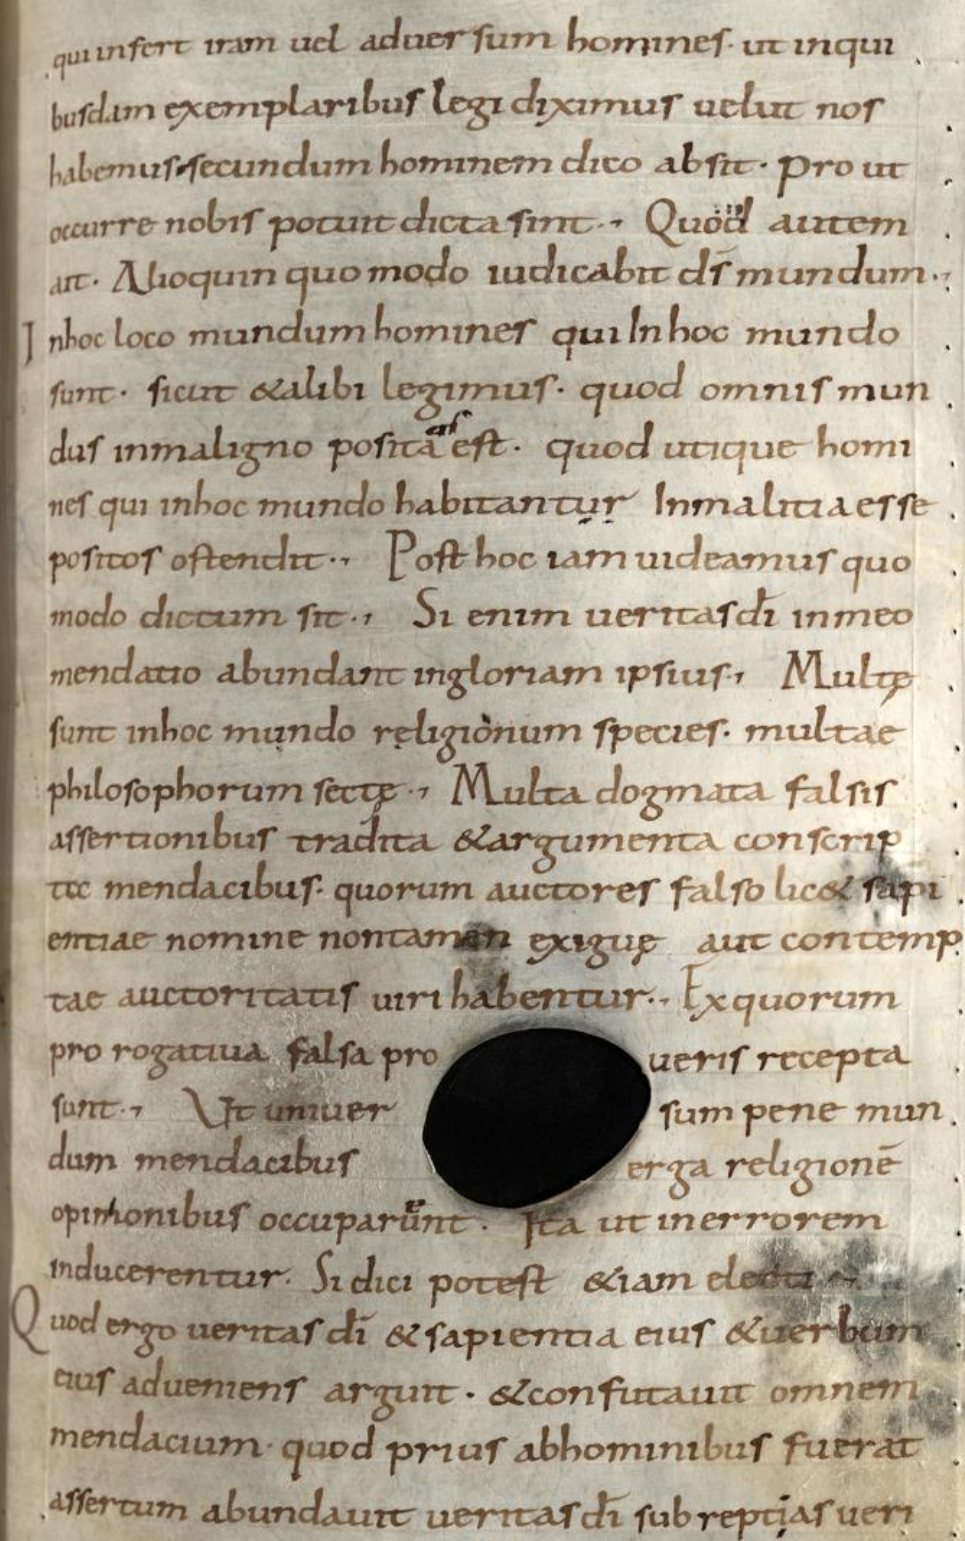 qui infert iram uel aduersum homines· ut inqui
busdam exemplaribus legi diximus uelut nos
habemus secundum hominem dico absit· pro ut
occurre nobis potuit dicta sint·, Quod autem
ait· Alioquin quo modo iudicabit ds̄ mundum·,
Inhoc loco mundum homines qui Inhoc mundo
sunt· sicut &alibi legimus· quod omnis mun
dus inmaligno posita est· quod utique homi
nes qui inhoc mundo habitantur Inmalitia esse
positos ostendit·, Post hoc iam uideamus quo
modo dictum sit·, Si enim ueritas dī inmeo
mendatio abundant ingloriam ipsius·, Multę
sunt inhoc mundo religionum species· multae
philosophorum sectę·, Multa dogmata falsis
assertionibus tradita &argumenta conscrip
ta mendacibus· quorum auctores falso lic& sapi
entiae nomine nontamen exiguę aut contemp
tae auctoritatis uiri habentur·, Ex quorum
pro rogatiua falsa pro ueris recepta
sunt·, Ut uniuer sum pene mun
dum mendacibus erga religionē
opinionibus occuparunt· Ita ut inerrorem
inducerentur· Si dici potest &iam electi
Quod ergo ueritas dī & sapientia eius &uerbum
eius adueniens arguit· &confutauit omnem
mendacium· quod prius abhominibus fuerat
assertum abundauit ueritas dī subreptias ueri